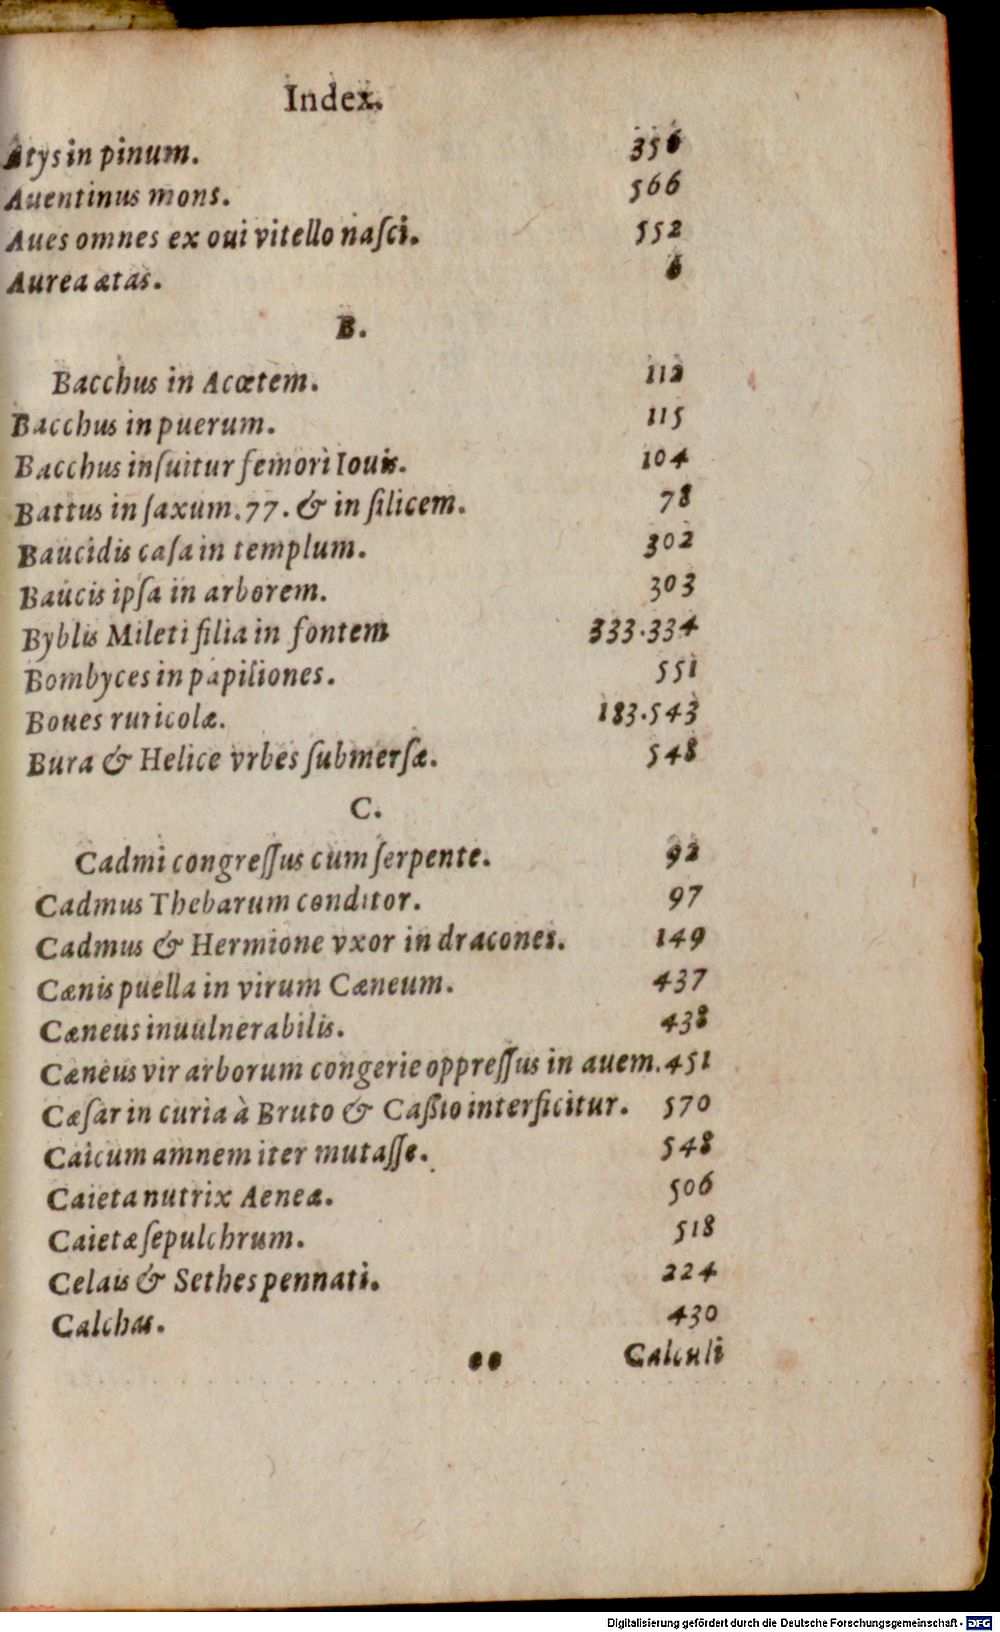 Index.
Atys in pinum. 356
Auentinus mons. 566
Aues omnes ex oui vitello naſci. 552
Aurea ætas. 6
B.
Bacchus in Acœtem. 112
Bacchus in puerum. 115
Bacchus inſuitur femori Iouis. 104
Battus in ſaxum. 77. & in ſilicem. 78
Baucidis caſa in templum. 302
Baucis ipſa in arborem. 303
Byblis Mileti filia in fontem 333.334
Bombyces in papiliones. 551
Boues ruricolæ. 183.543
Bura & Helice vrbes ſubmerſæ. 548
C.
Cadmi congreſſus cum ſerpente. 92
Cadmus Thebarum conditor. 97
Cadmus & Hermione vxor in dracones. 149
Cænis puella in virum Cæneum. 437
Cæneus inuulnerabilis. 438
Cæneus vir arborum congerie oppreſſus in auem. 451
Cæſar in curia à Bruto & Caſsio interficitur. 570
Caicum amnem iter mutaſſe. 548
Caieta nutrix Aeneæ. 506
Caietæ ſepulchrum. 518
Celais & Sethes pennati. 224
Calchas. 430
●● Calculi
Digitalisierung gefördert durch die Deutsche Forschungsgemeinschaft - DFG